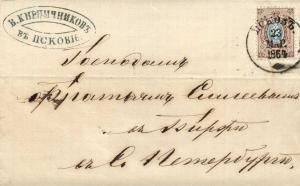 В. КИРПИЧНИКОВЪ
ВЪ ПСКОВѢ.
ПСКОВЪ
23
МАР.
1864
Господамъ
Братьямъ Елисеевымъ
въ Биржѣ
въ С. Петербургѣ.